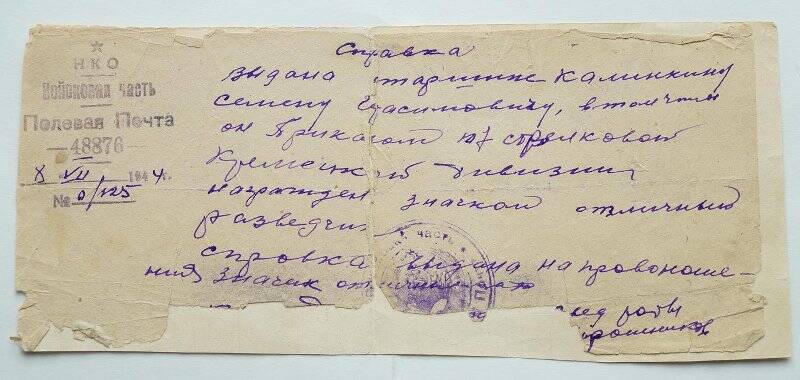 НКО
Войсковая часть
Полевая Почта
48876
8 VII 1944 г.
№ 0/125
Справка
выдана старшине Калинкину
Семену Герасимовичу, в том что
он Приказом 107 стрелковой
Кременецкой дивизии
награжден значком отличный
разведчик
справка выдана на правоноше-
ния значик
часть
роты